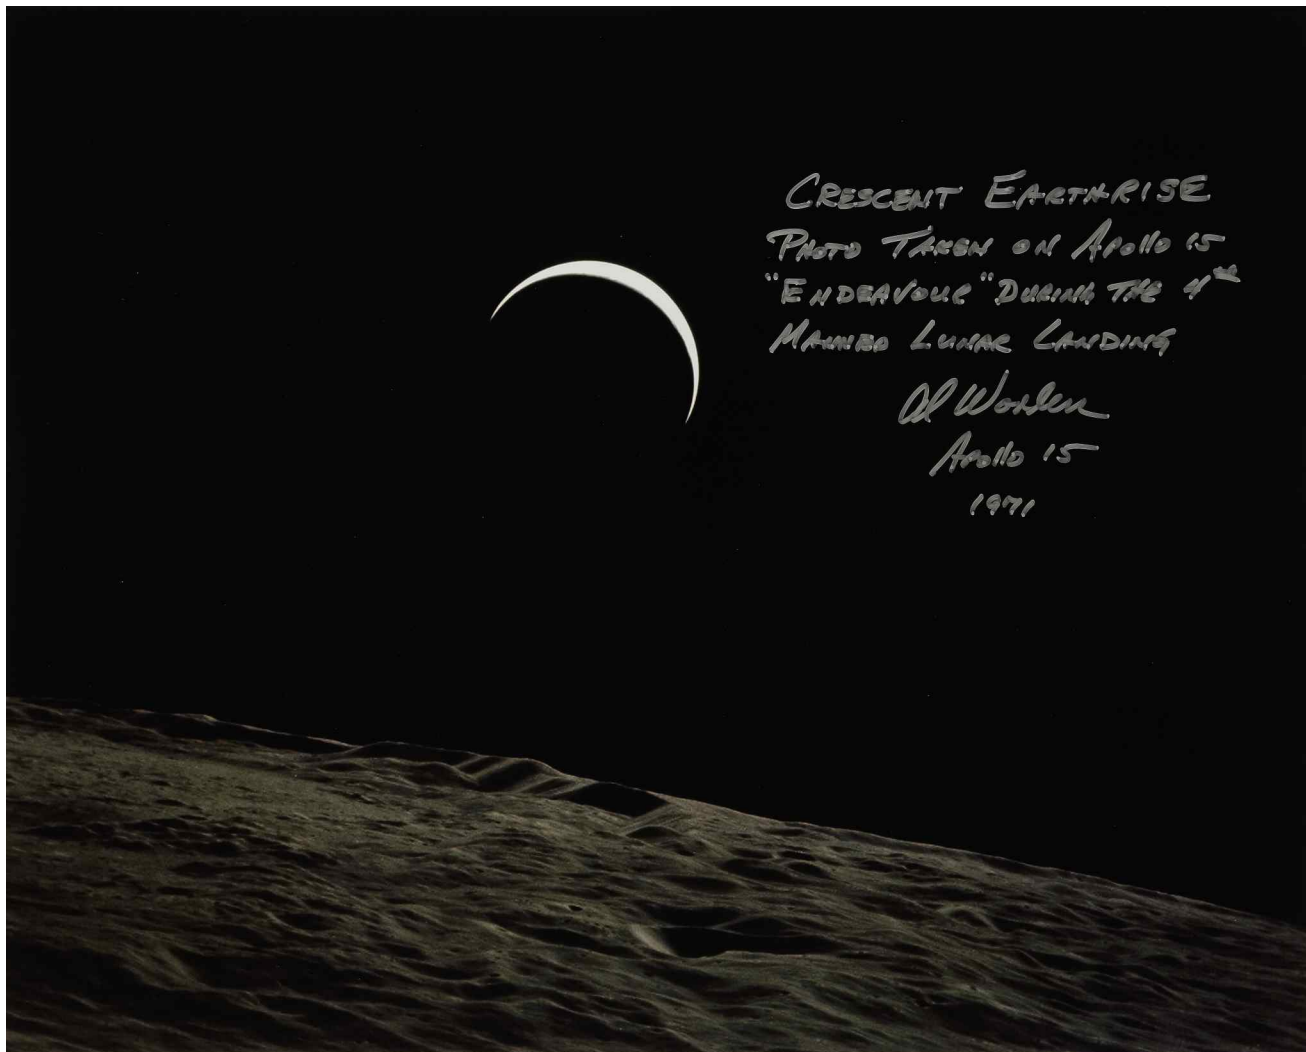 CRESCENT EARTHRISE
PHOTO TAKEN ON APOLLO 15
"ENDEAVOUR" DURING THE 4th
MANNED LUNAR LANDING
Al Worden
APOLLO 15
1971